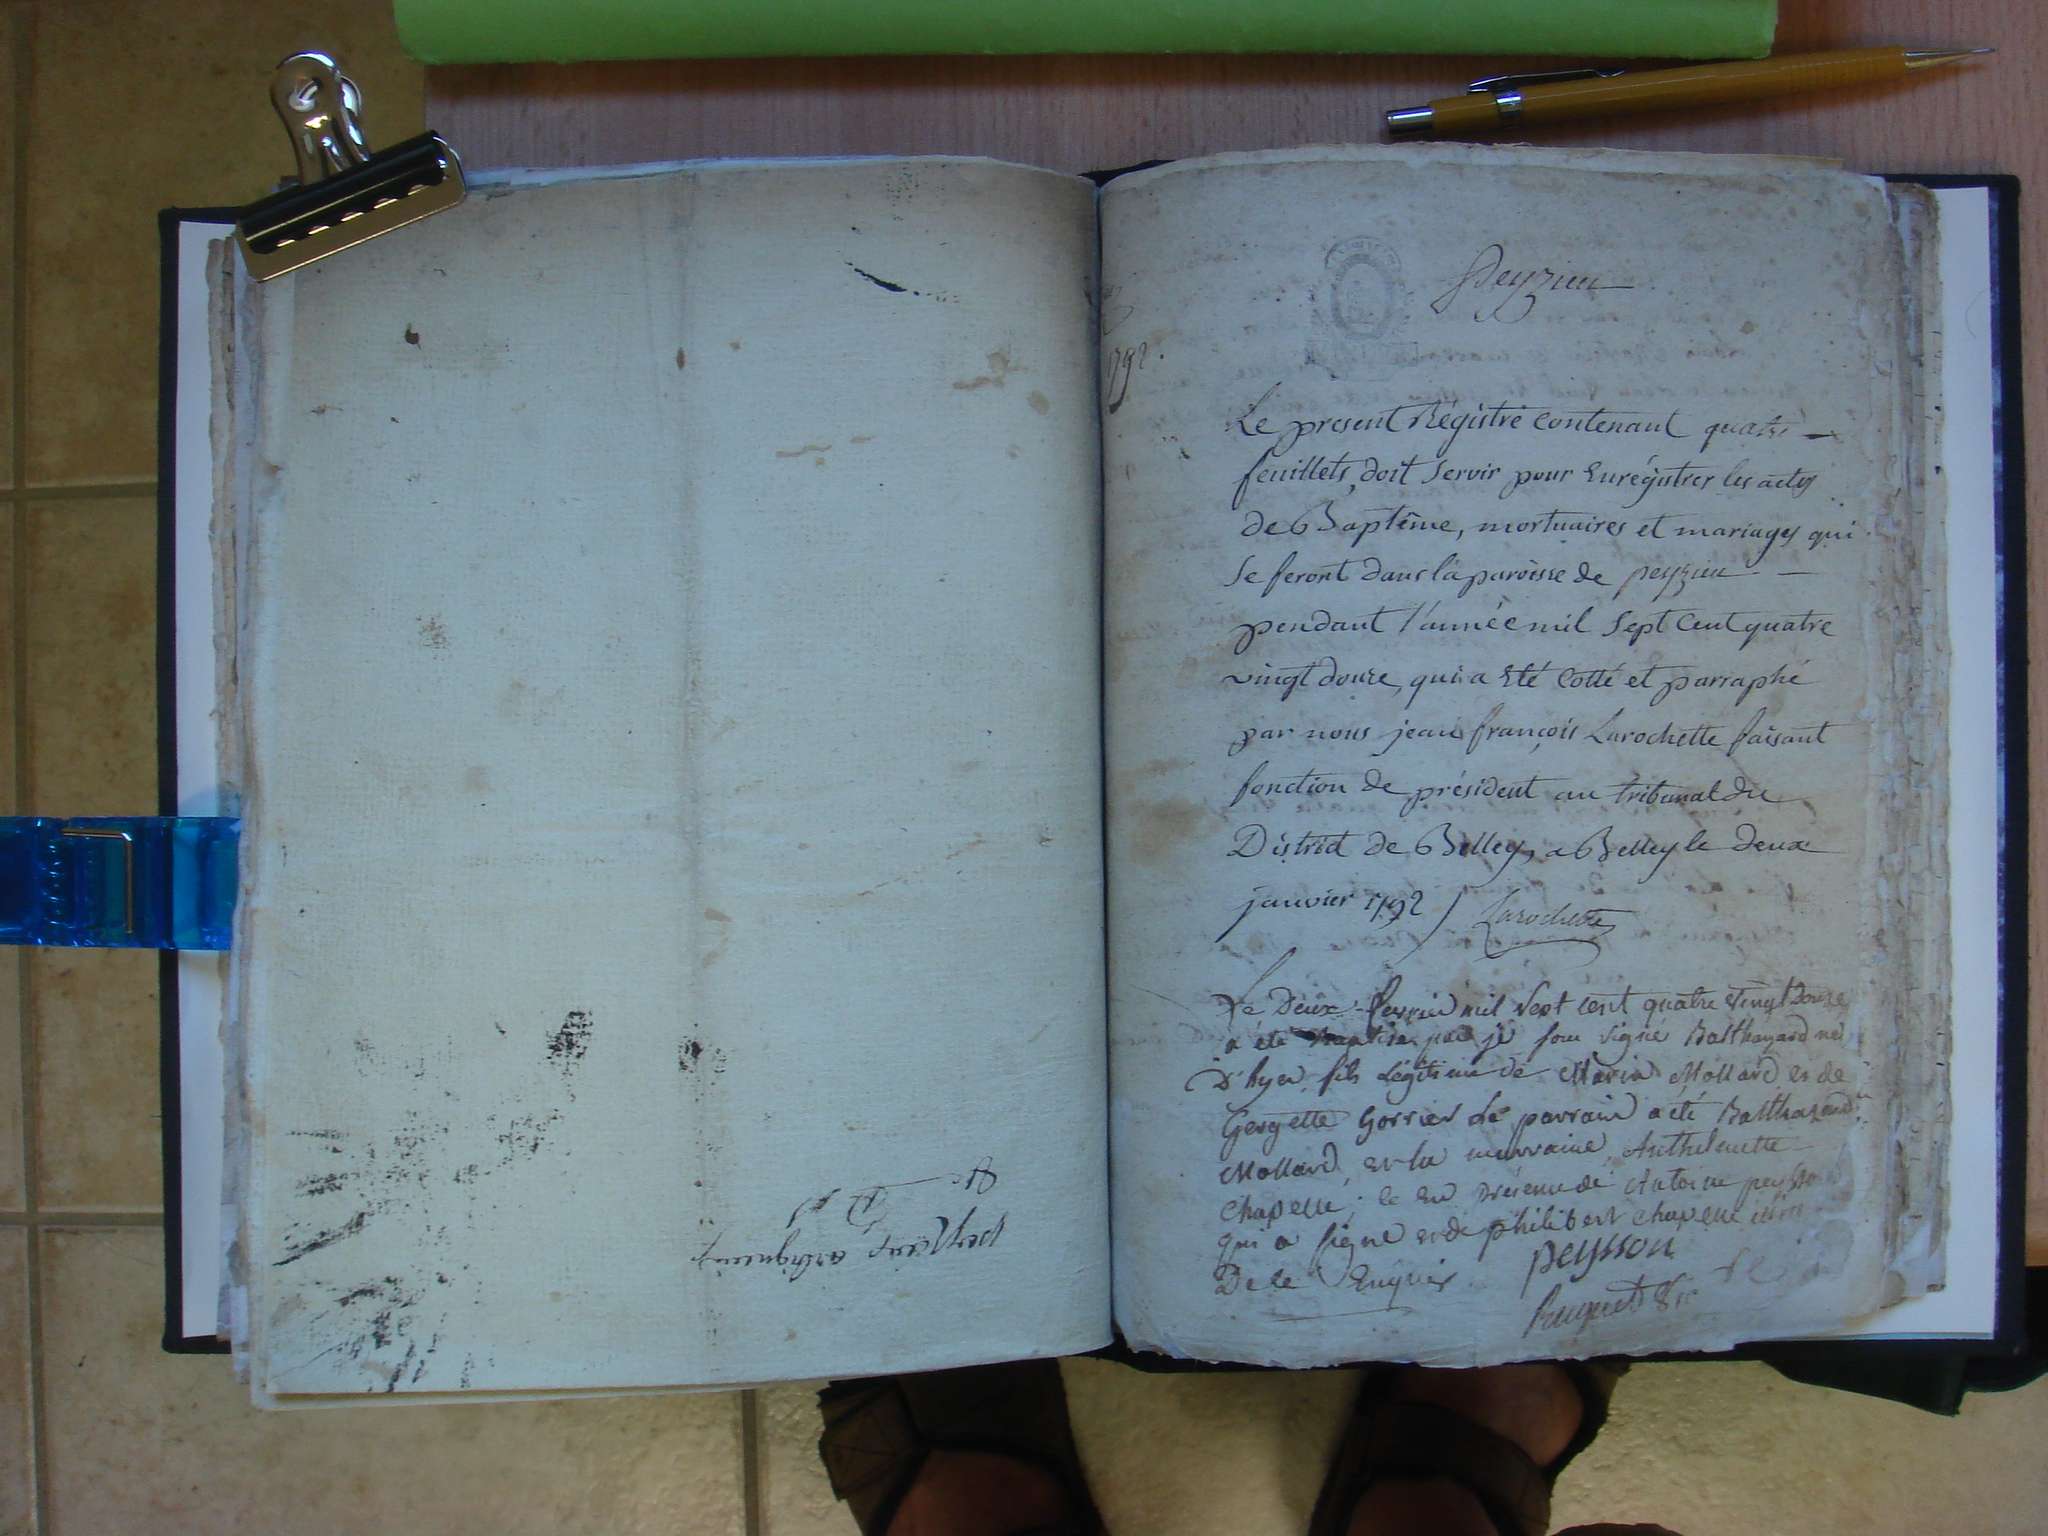 peyzieu
1792.
Le present Régistre contenant quatre
feuillets, doit servir pour Enrégistrer les actes
de Baptême, mortuaires et mariages qui
se feront dans la paroisse de peyzieu
pendant l'année mil sept cent quatre
vingt douze, qui a Eté Cotté et parraphé
par nous jean françois Larochette faisant
fonction de président au tribunal du
District de Belley, a Belley le deux
janvier 1792 / Larochette
Le Deux fevrier mil sept cent quatre vingt Douze
a été Baptise par je sou signe Balthazard né
D'hyer fils Légitime de Marin Mollard et de
Gergette Gorrier Le parrain a été Balthazard
Mollard et la marraine Anthelmette
Chapelle; le en présence de Antoine peysson
qui a signe et de philibert chapelle
De le Enquis
peysson